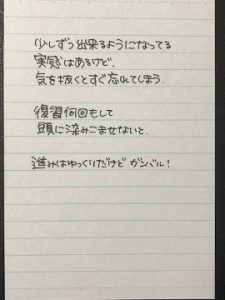 少しずつ出来るようになってる
実感はあるけど、
気を抜くとすぐ忘れてしまう.
復習何回もして
頭に染みこませないと.
進みはゆっくりだけど ガンバル!